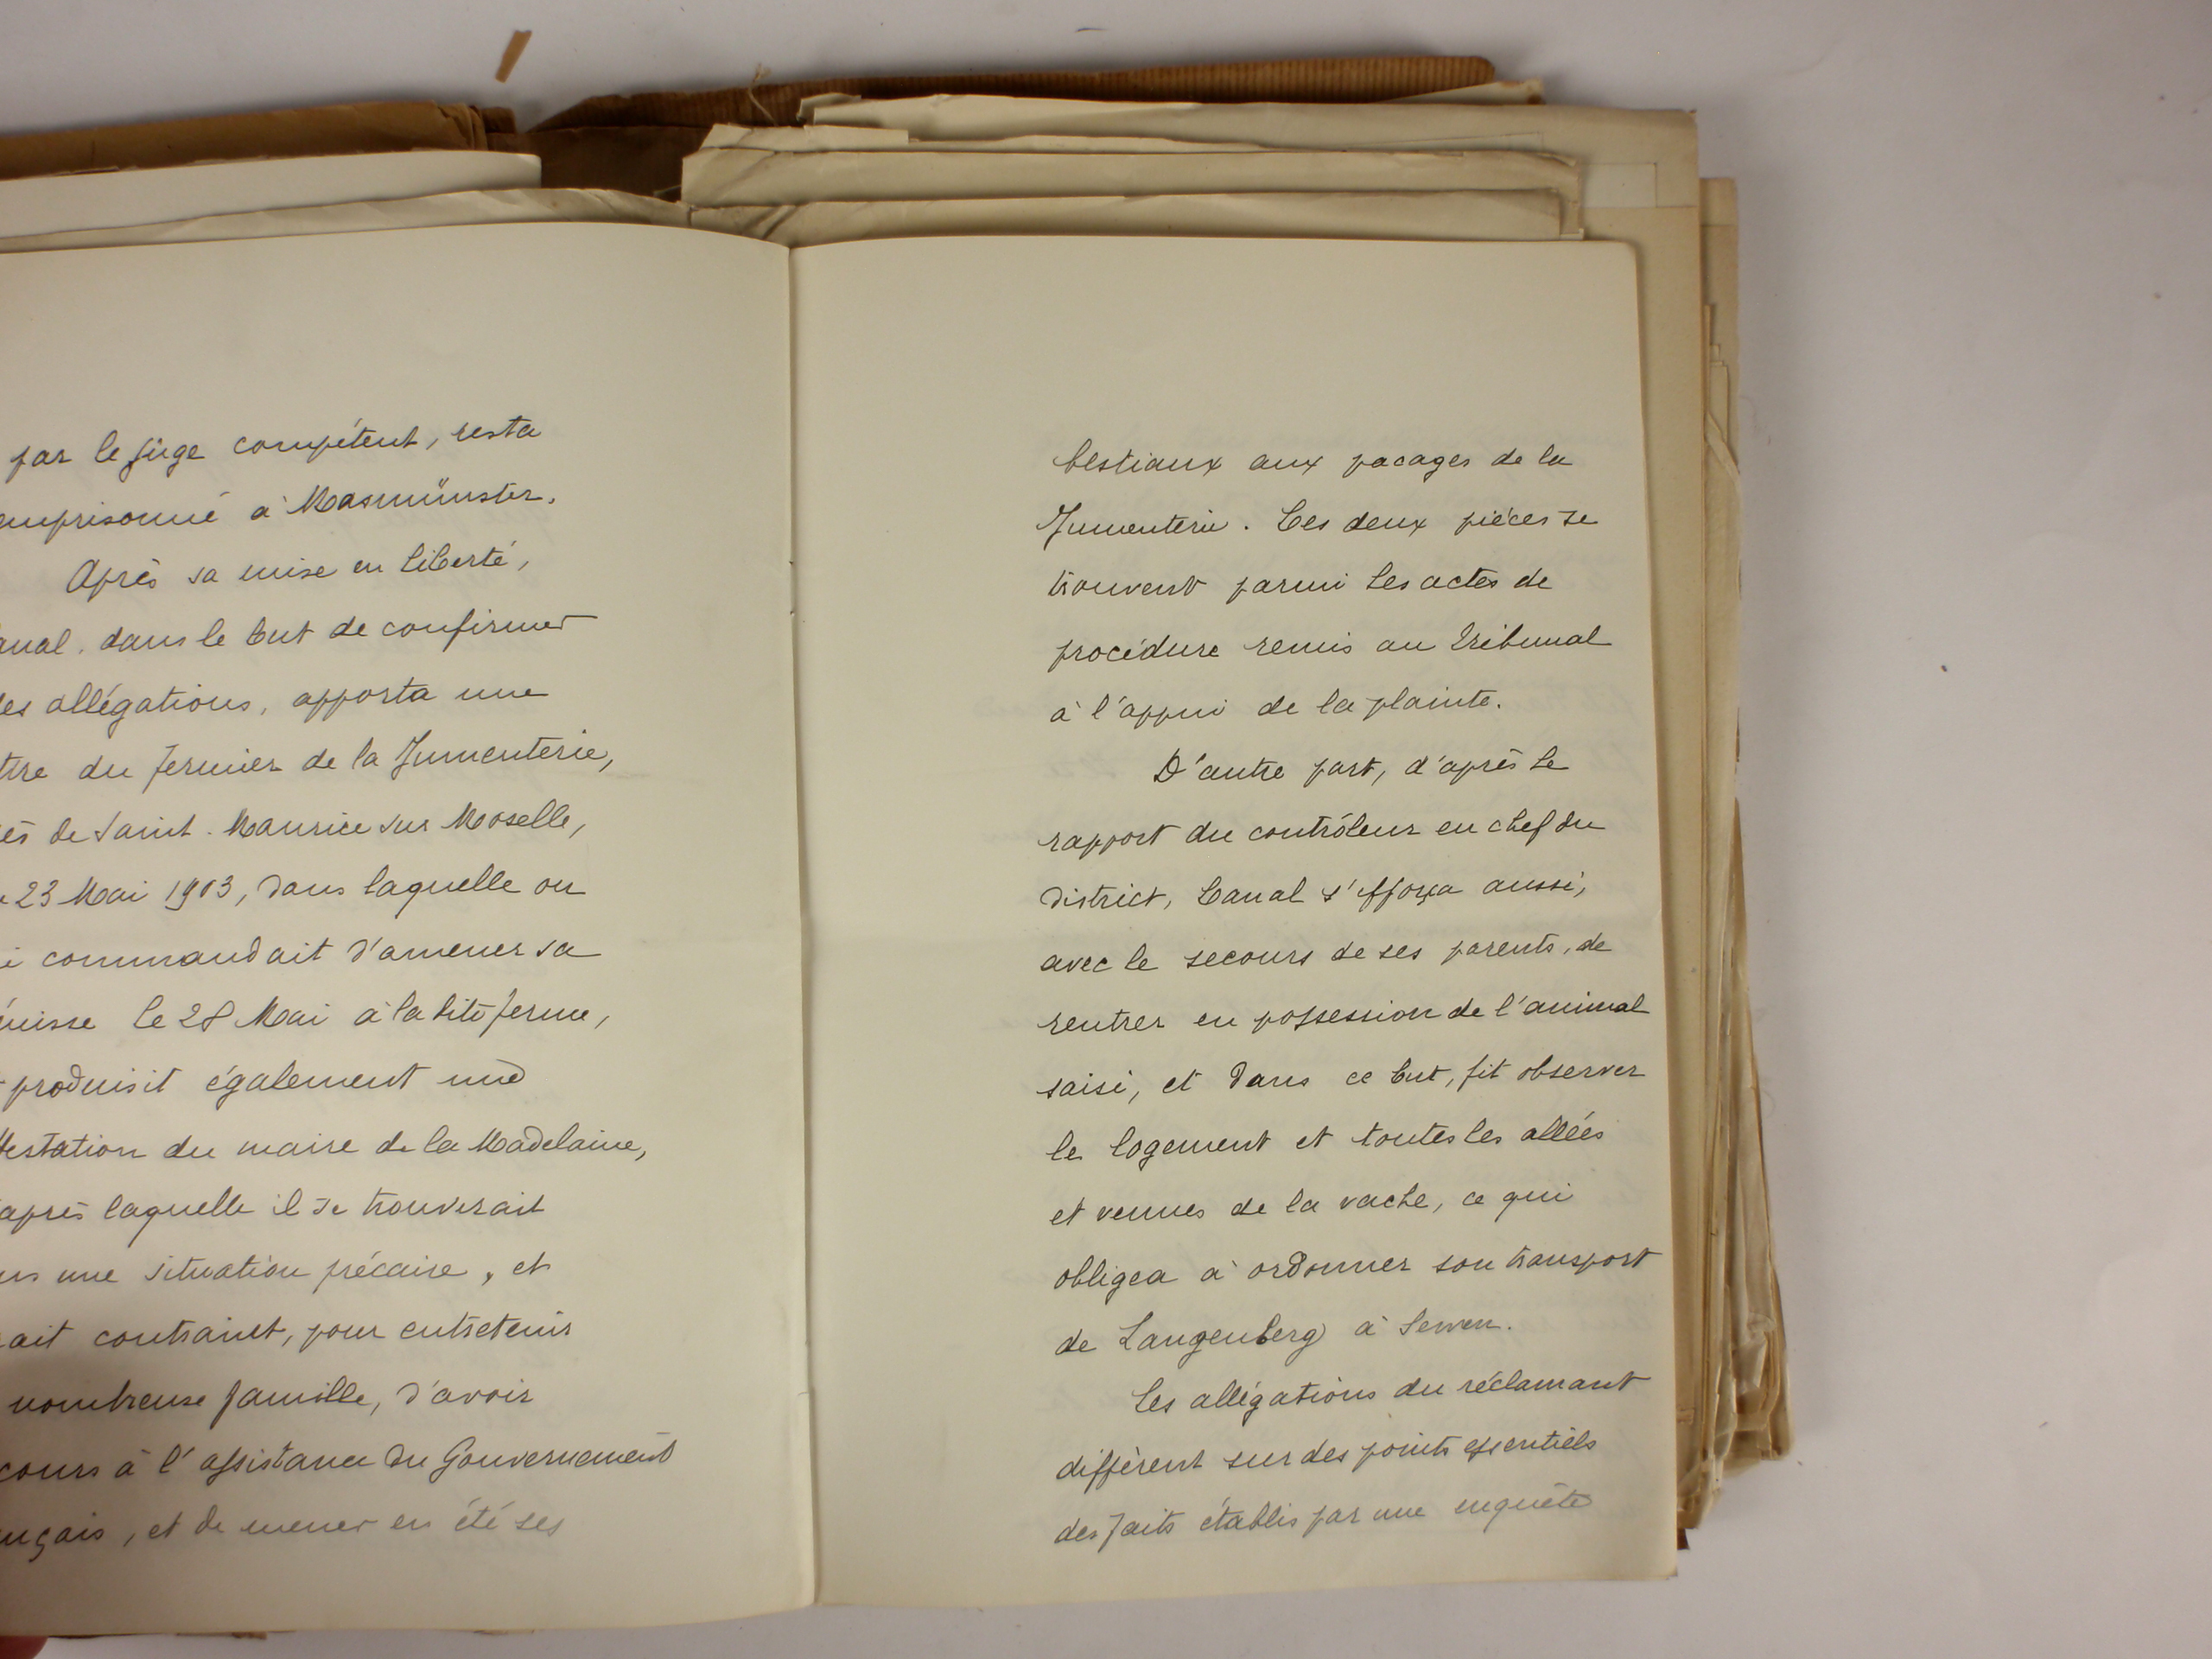 par le juge compétent, resta
emprisonné à Masmünster.
Après sa mise en liberté,
dans le but de confirmer
allégations, apporta une
du fermier de la Jumenterie,
de Saint-Maurice sur Moselle,
23 Mai 1903, dans laquelle on
commandait d'amener sa
le 28 Mai à la dite ferme,
produisit également une
du maire de la Madelaine,
après laquelle il se trouverait
une situation précaire, et
contraint, pour entretenir
nombreuse famille, d'avoir
à l'assistance du Gouvernement
et de mener en été ses
bestiaux aux pacages de la
Jumenterie. Ces deux pièces se
trouvent parmi les actes de
procédure remis au tribunal
à l'appui de la plainte.
D'autre part, d'après le
rapport du contrôleur en chef du
district, Canal s'efforça aussi,
avec le secours de ses parents, de
rentrer en possession de l'animal
saisi, et dans ce but, fit observer
le logement et toutes les allées
et venues de la vache, ce qui
obligea à ordonner son transport
de Langenberg à Sewen.
Les allégations du réclamant
diffèrent sur des points essentiels
des faits établis par une enquête